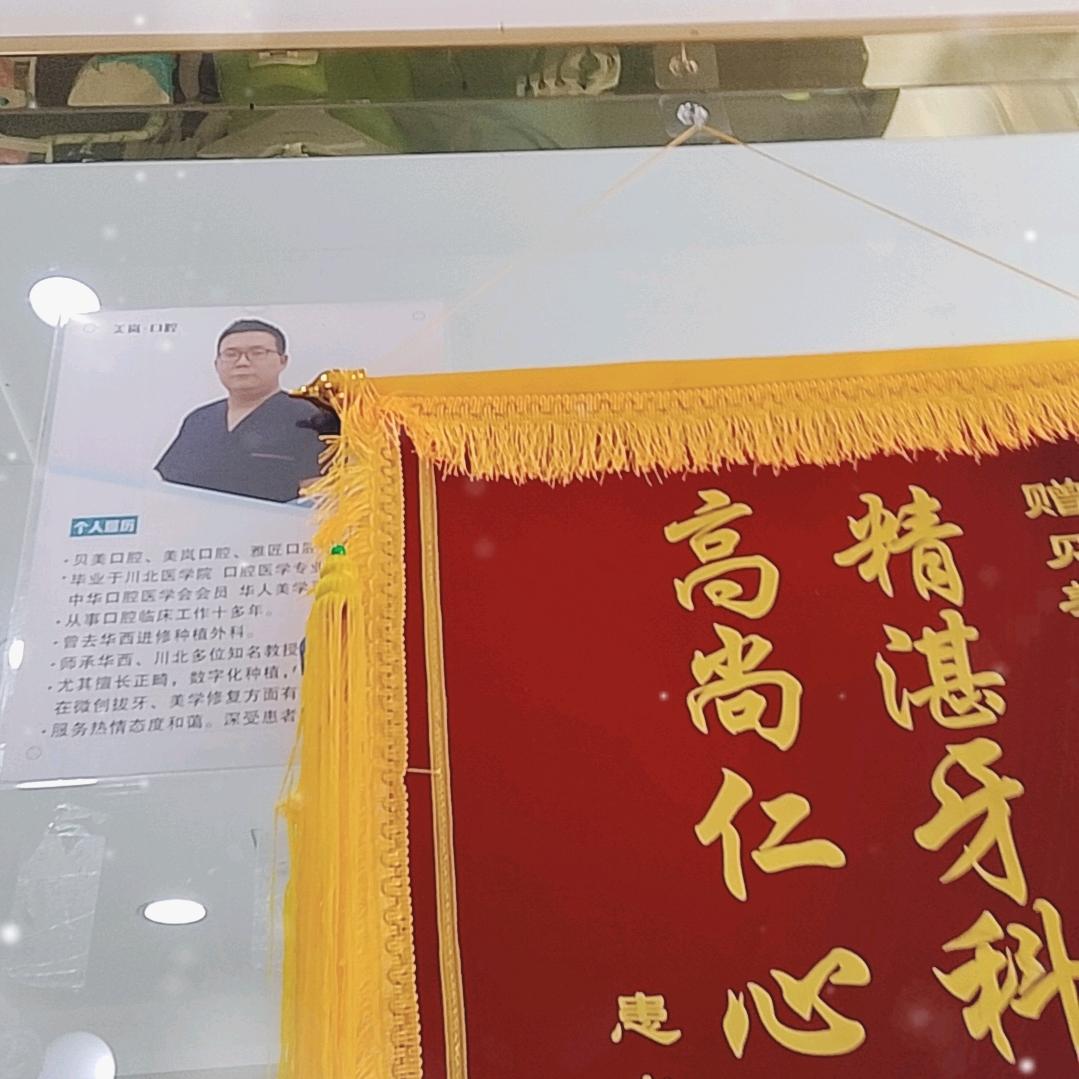 美岚·口腔
个人简历
·贝美口腔、美岚口腔、雅匠口腔
·毕业于川北医学院 口腔医学专业
中华口腔医学会会员 华人美学
·从事口腔临床工作十多年。
·曾去华西进修种植外科。
·师承华西、川北多位知名教授
·尤其擅长正畸，数字化种植，
在微创拔牙、美学修复方面有
·服务热情态度和蔼。深受患者
赠
贝
精湛牙科
高尚仁心
患